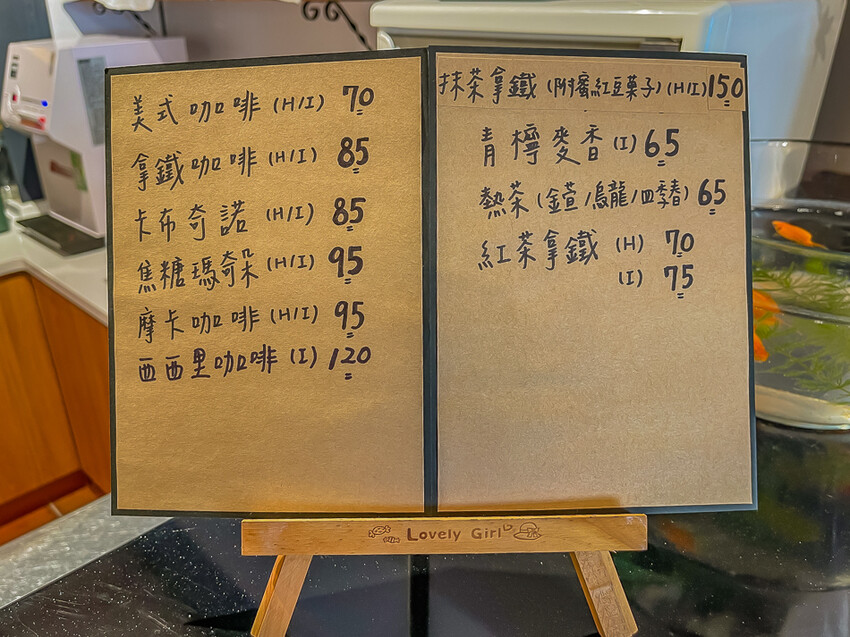 美式咖啡 (H/I) 70
拿鐵咖啡 (H/I) 85
卡布奇諾 (H/I) 85
焦糖瑪奇朵 (H/I) 95
摩卡咖啡 (H/I) 95
西西里咖啡 (I) 120
抹茶拿鐵 (附蜜紅豆菓子) (H/I) 150
青檸麥香 (I) 65
熱茶 (金萱/烏龍/四季春) 65
紅茶拿鐵 (H) 70
(I) 75
Lovely Girl